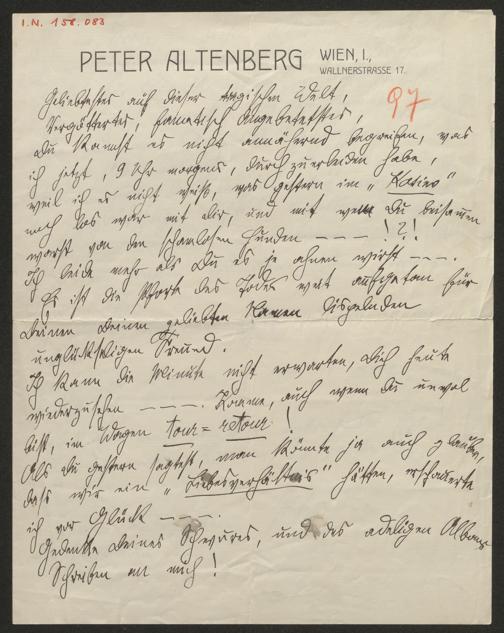 I.N. 158.083
PETER ALTENBERG WIEN, I.,
WALLNERSTRASSE 17.
97
Geliebtestes auf dieser tragischen Welt,
Vergöttertes, fanatisch Angebetetstes,
Du kannst es nicht annähernd begreifen, was
ich jetzt, 9 Uhr morgens, durchzuerleiden habe,
weil ich es nicht weiß, was gestern im „Kasino"
noch los war mit Dir, und mit wem Du beisammen
warst von den schamlosen Hunden – – – !?!
Ich leide mehr als Du es je ahnen wirst – – –.
Es ist die Pforte des Todes weit aufgetan für
Deinen Deinen geliebten Namen lispelnden
unglückseligen Freund.
Ich kann die Minute nicht erwarten, Dich heute
wiederzusehen – – – –. Komme, auch wenn Du unwol
bist, im Wagen tour = retour!
Als Du gestern sagtest, man könnte ja auch glauben,
dass wir ein „Liebesverhältnis" hätten, erschauerte
ich vor Glück – – – –.
Gedenke Deines Schwures, und des adeligen
Schreiben an mich!